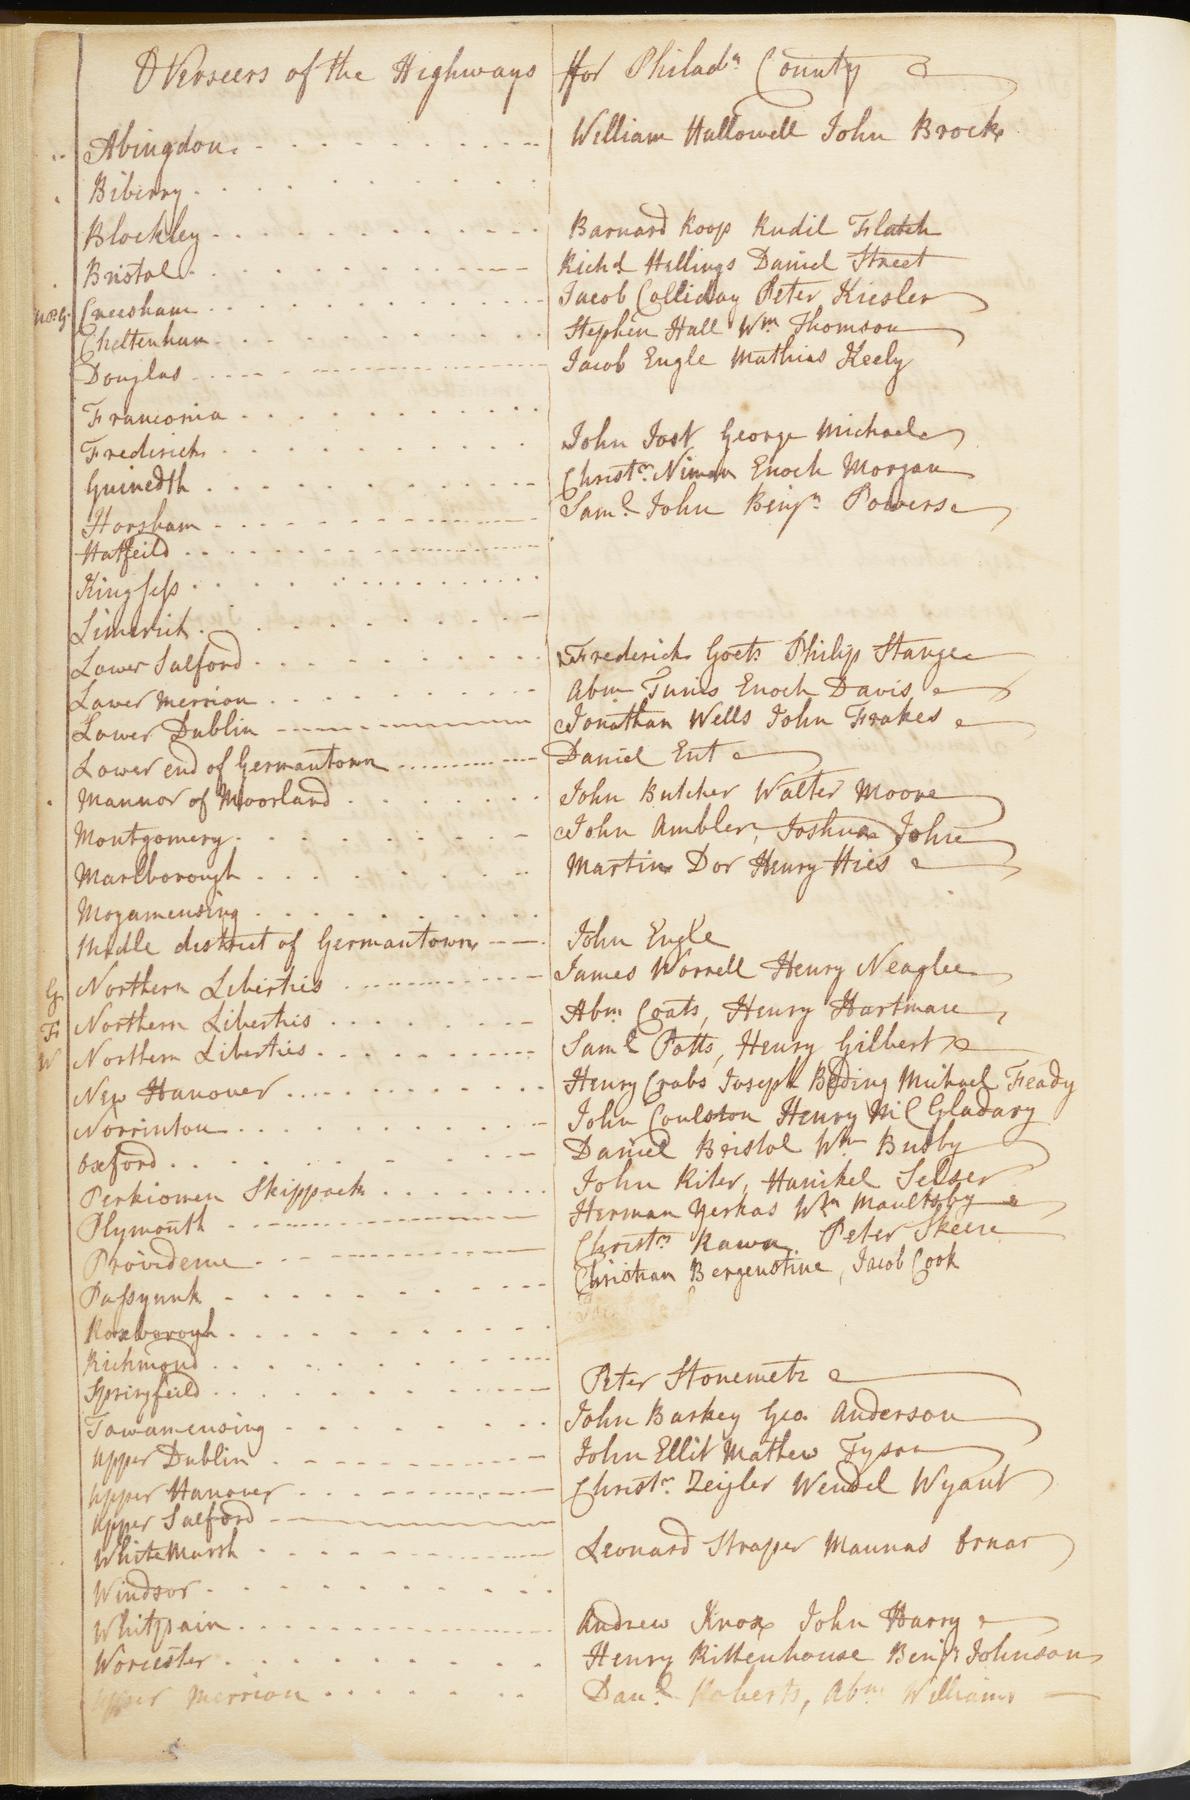 Overseers of the Highways for Philad.ª County
Abingdon William Hallowell John Brock
Biberry
Blockley Barnard Roop Rudil Flatch
Bristol Rich.d Hallings Daniel Street
up.G. Creesham Jacob Colliday Peter Kiesler
Cheltenham Stephen Hall W.m Thomson
Douglas Jacob Engle Mathias Keely
Franconia
Frederick John Jost George Michael
Guinedth Christ.r Niman Enoch Morgan
Horsham Sam.l John Benj.n Powers
Hatfeild
Kingsess
Limerick
Lower Salford Frederick Goets Philip Stange
Lower Merrion Abm Tunis Enoch Davis
Lower Dublin Jonathan Wells John Frakes
Lower end of Germantown Daniel Ent
Mannor of Moorland John Butcher Walter Moore
Montgomery John Ambler, Joshua John
Marlborough Martin Dor Henry Hies
Moyamensing
Midle district of Germantown John Engle
G Northern Liberties James Worrell Henry Neaglee
F Northern Liberties Abm. Coats, Henry Hartman
W Northern Liberties Sam.l Potts, Henry Gilbert
New Hanover Henry Crabs Joseph Beding Michael Feady
Norrinton John Coulston Henry McGladary
Oxford Daniel Bristol Wm Busby
Perkiomen Skippack John Riter, Hanikel Selser
Plymouth Herman Yerkas Wm Maultsby
Providence Christ.n Rawn Peter Skeen
Passyunk Christian Bergenstine, Jacob Cook
Roxborough
Richmond
Springfeild Peter Stonemetz
Towamensing John Barkey Geo. Anderson
Upper Dublin John Ellit Mathew Tyson
Upper Hanover Christ.r Zeigler Wendel Wyant
Upper Salford
White Marsh Leonard Straper Maunas
Windsor
Whitpain Andrew Knox John Harry
Worcester Henry Rittenhouse Benj.n Johnson
Upper Merrion Dan.l Roberts, Abm Williams